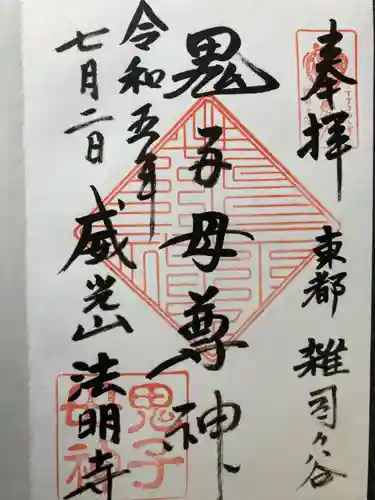 奉拝
東都 雑司ヶ谷
鬼子母尊神
令和五年
七月二日
威光山 法明寺
鬼子
母神